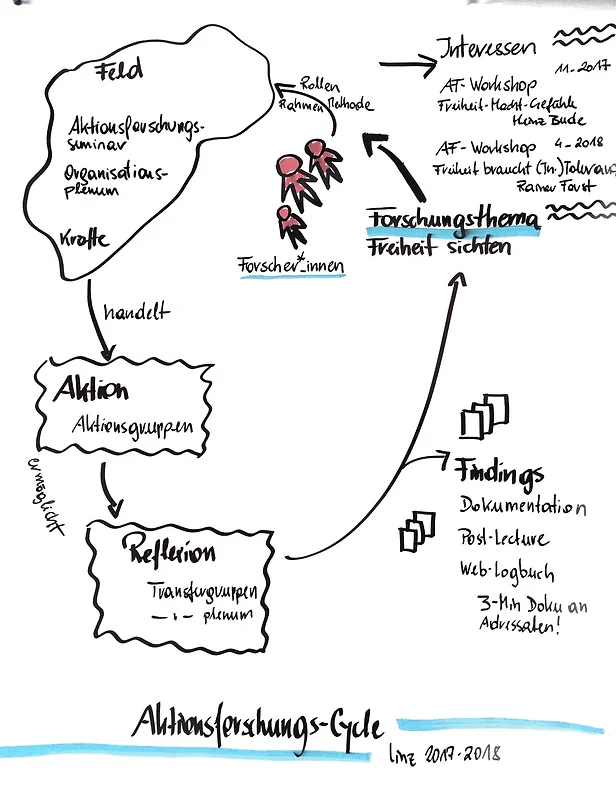 Feld
Aktionsforschungs-
seminar
Organisations-
plenum
Kräfte
Rollen
Rahmen Methode
Forscher*_innen
Interessen
11-2017
AF-Workshop
Freiheit-Macht-Gefühle
Heinz Bude
AF-Workshop 4-2018
Freiheit braucht (In-)Toleranz
Rainer Forst
Forschungsthema
Freiheit sichten
handelt
Aktion
Aktionsgruppen
ermöglicht
Reflexion
Transfergruppen
— ı — plenum
Findings
Dokumentation
Post-Lecture
Web-Logbuch
3-Min Doku an
Adressaten!
Aktionsforschungs-Cycle
Linz 2017-2018